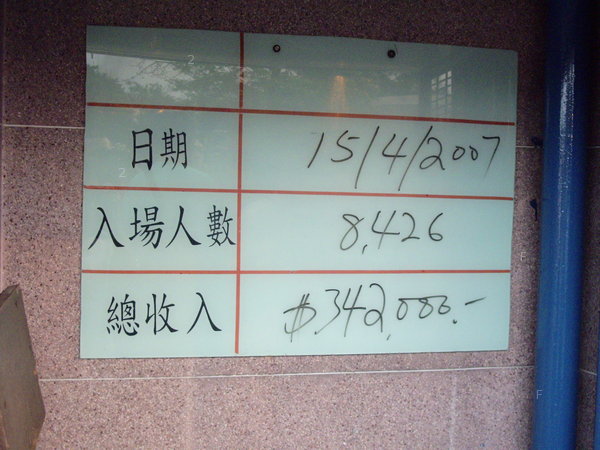 日期 15/4/2007
入場人數 8,426
總收入 $.342,000.-